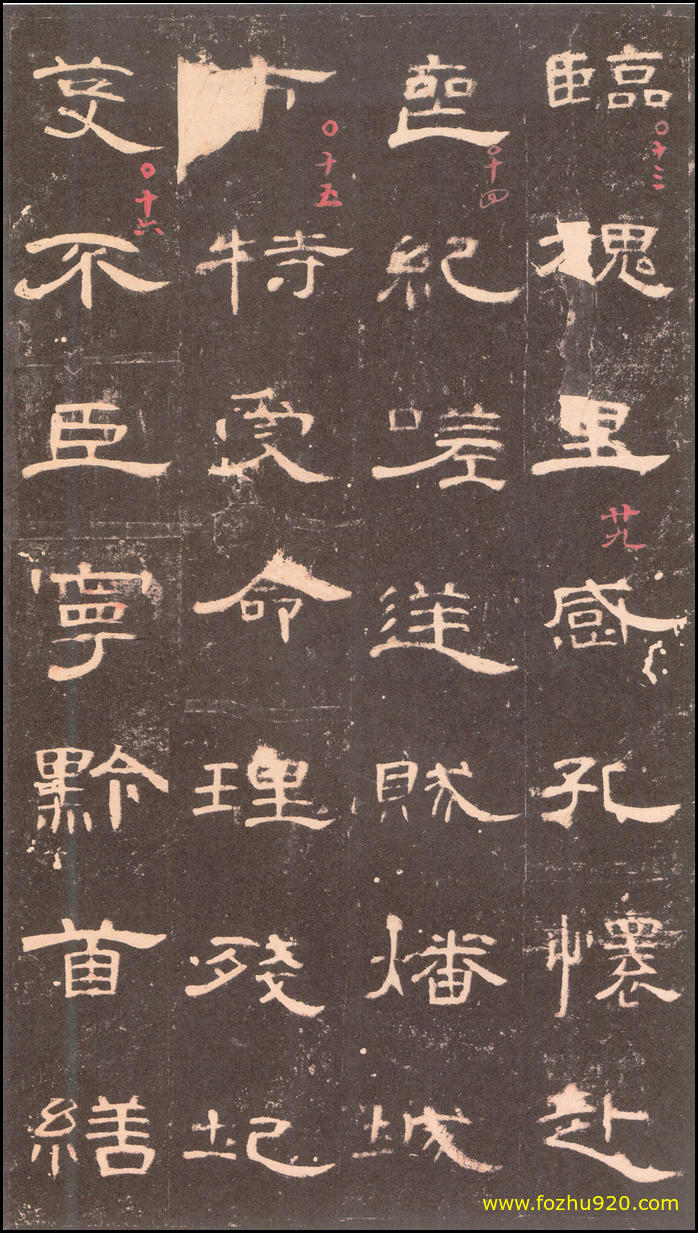 臨槐里感孔懷赴
〇十三
廿九
喪紀嗟逆賊燔城
〇十四
市特受命理殘圮
〇十五
芟不臣寧黔首繕
〇十六
www.fozhu920.com